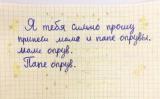 Я тебя сильно прошу
принеси маме и папе опрувы.
маме опрув.
Папе опрув.